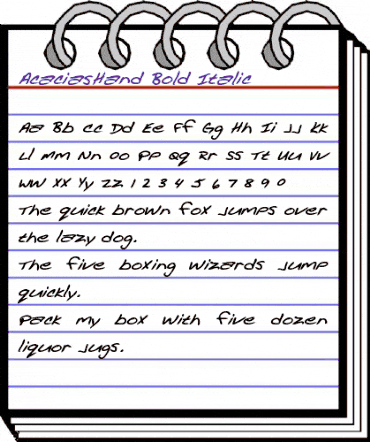 AcaciasHand Bold Italic
Aa Bb Cc Dd Ee Ff Gg Hh Ii Jj Kk
Ll Mm Nn Oo Pp Qq Rr Ss Tt Uu Vv
Ww Xx Yy Zz 1 2 3 4 5 6 7 8 9 0
The quick brown fox jumps over
the lazy dog.
The five boxing wizards jump
quickly.
Pack my box with five dozen
liquor jugs.